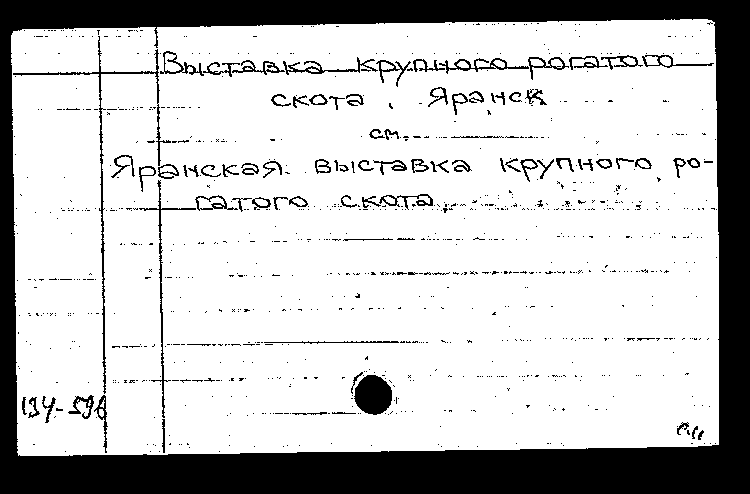 Выставка крупного рогатого
скота. Яранск
см.
Яранская выставка крупного ро-
гатого скота.
134-596